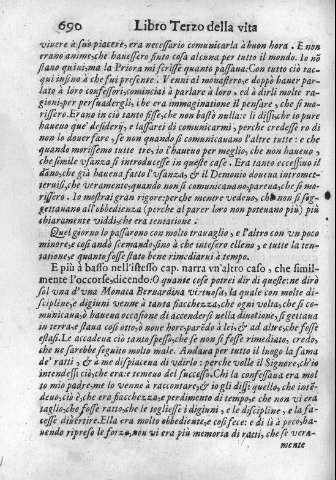 690 Libro Terzo della vita
viuere à suo piacere, era necessario comunicarla à buon hora. E non
erano anime, che hauessero finto cosa alcuna per tutto il mondo. Io nõ
staua quiui, ma la Priora mi scrisse quanto passaua: Con tutto ciò tac-
qui insino à che fui presente. Venni al monastero, e doppò hauer par-
lato à loro confessori, cominciai à parlare à loro, ed à dirli molte ra-
gioni, per persuadergli, che era immaginatione il pensare, che si mo-
rissero. Erano in ciò tanto fisse, che non bastò nulla: e li dissi, che io pure
haueuo que' desiderij, e lassarei di comunicarmi, perche credessero di
non lo douer fare, se non quando si comunicauano l'altre tutte: e che
quando morissemo tutte tre, io l'hauuo per meglio, che non haueuo,
che simile vsanza si introducesse in queste case. Era tanto eccessiuo il
dãno, che già haueua fatto l'vsanza, & il Demonio doueua intromet-
teruisi, che veramente, quando non si comunicauano, pareua, che si mo-
rissero. Io mostrai gran rigore: perche mentre vedeuo, che non si sog-
gettauano all'obbedienza (perche al parer loro non poteuano più) più
chiaramente viddi, che era tentatione.
Quel giorno lo passarono con molto trauaglio, e l'altro con vn poco
minore, e così andò scemando, sino à che intesero elleno, e tutte la ten-
tatione, e quanto fosse stato bene rimediarui à tempo.
E più à basso nell'istesso cap. narra vn'altro caso, che simil-
mente l'occorse, dicendo. O quante cose potrei dir di queste: ne dirò
sol vna d'vna Moneca Bernardina virtuosa, la quale con molte di-
scipline, e digiuni venne à tanta fiacchezza, che ogni volta, che si co-
municaua, ò haueua occasione di accendersi nella diuotione, si gettaua
in terra, e staua così otto, ò noue hore, parẽdo à lei, & ad altre, che fosse
estasi. Le accadeua ciò tanto spesso, che se non si fosse rimediato, credo,
che ne sarebbe seguito molto male. Andaua per tutto il luogo la fama
de' ratti; & à me dispiaceua di vdirlo: perche volle il Signore, ch'io
intendessi ciò, che era: e temeuo del successo. Chi la confessaua era mol
to mio padre, me lo venne à raccontare, & io gli dissi quello, che intẽ-
deuo, ciò è, che era fiacchezza, e perdimento di tempo, e che non vi era
taglio, che fosse ratto, che le togliesse i digiuni, e le discipline, e la fa-
cesse diuertire. Ella era molto obbediente, e così fece: e di lì à poco, ha-
uendo ripreso le forze, non vi era più memoria di ratti, che se vera-
mente